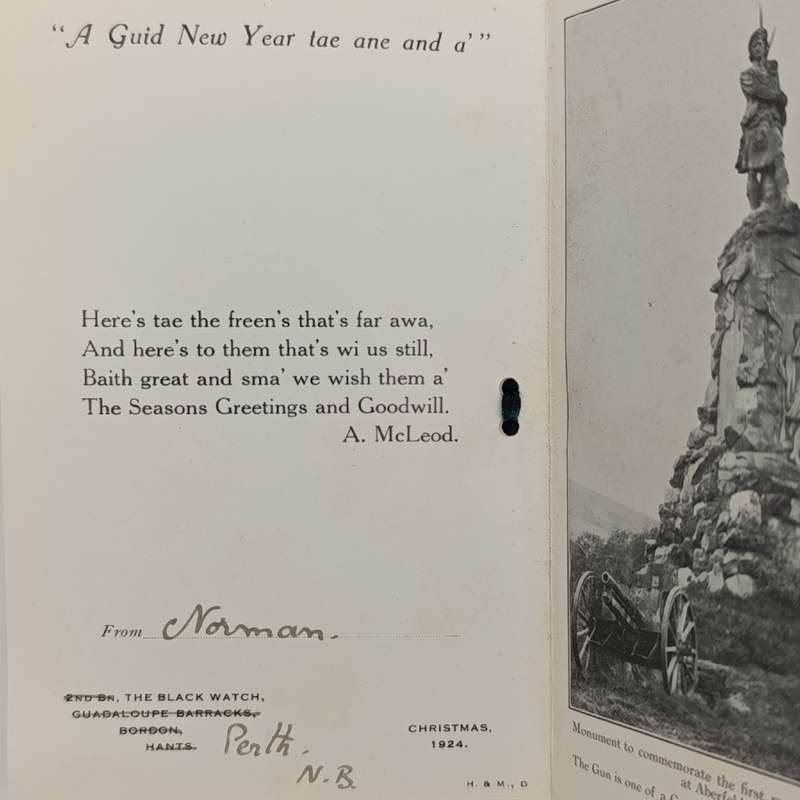 "A Guid New Year tae ane and a'"
Here's tae the freen's that's far awa,
And here's to them that's wi us still,
Baith great and sma' we wish them a'
The Seasons Greetings and Goodwill.
A. McLeod.
From Norman.
2ND BN, THE BLACK WATCH,
GUADALOUPE BARRACKS,
BORDON,
HANTS.
Perth.
N.B.
CHRISTMAS,
1924.
H. & M., D
Monument to commemorate the first
at Aberfel
The Gun is one of a